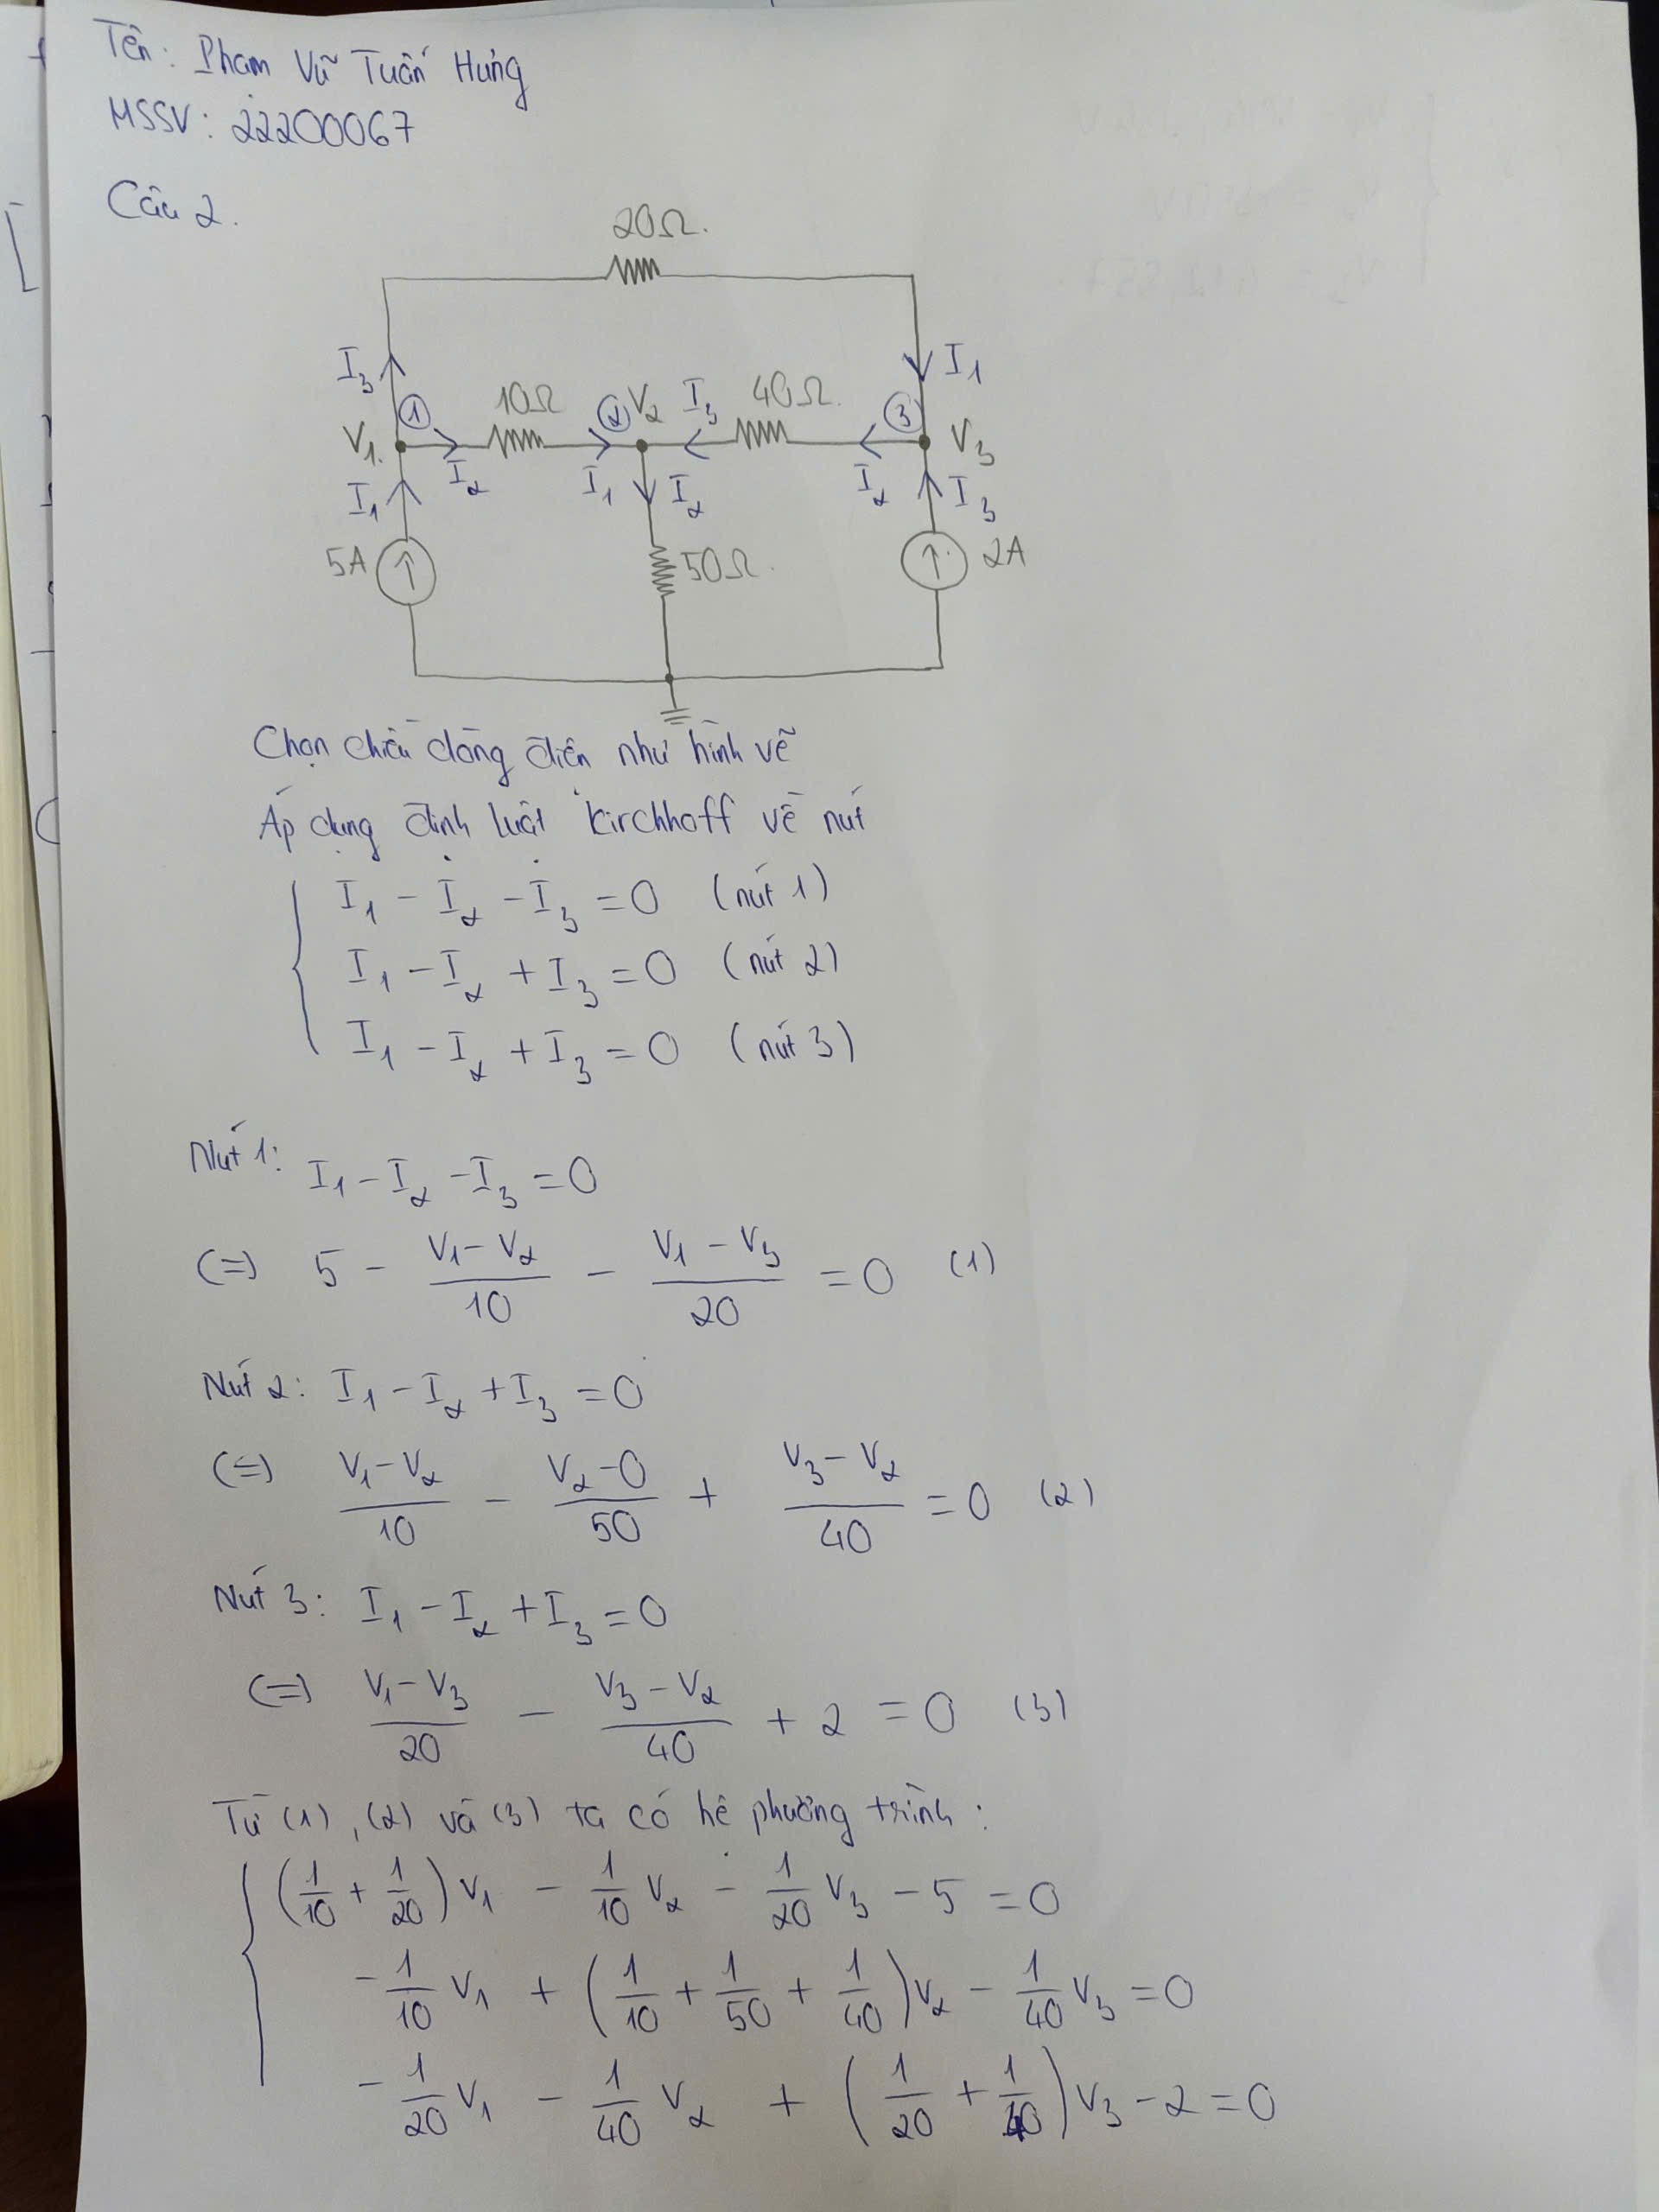 Tên: Phạm Vũ Tuấn Hưng
MSSV: 22200067
Câu 2.
20Ω.
I₃ I₁
① 10Ω ② V₂ I₃ 40Ω ③
V₁ I₂ I₁ I₂ I₂ V₃
I₁ I₃
5A 50Ω 2A
Chọn chiều dòng điện như hình vẽ
Áp dụng định luật kirchhoff về nút
I₁ - I₂ - I₃ = 0 (nút 1)
I₁ - I₂ + I₃ = 0 (nút 2)
I₁ - I₂ + I₃ = 0 (nút 3)
Nút 1: I₁ - I₂ - I₃ = 0
(=) 5 - (V₁ - V₂)/10 - (V₁ - V₃)/20 = 0 (1)
Nút 2: I₁ - I₂ + I₃ = 0
(=) (V₁ - V₂)/10 - (V₂ - 0)/50 + (V₃ - V₂)/40 = 0 (2)
Nút 3: I₁ - I₂ + I₃ = 0
(=) (V₁ - V₃)/20 - (V₃ - V₂)/40 + 2 = 0 (3)
Từ (1), (2) và (3) ta có hệ phương trình:
(1/10 + 1/20) V₁ - 1/10 V₂ - 1/20 V₃ - 5 = 0
- 1/10 V₁ + (1/10 + 1/50 + 1/40) V₂ - 1/40 V₃ = 0
- 1/20 V₁ - 1/40 V₂ + (1/20 + 1/40) V₃ - 2 = 0